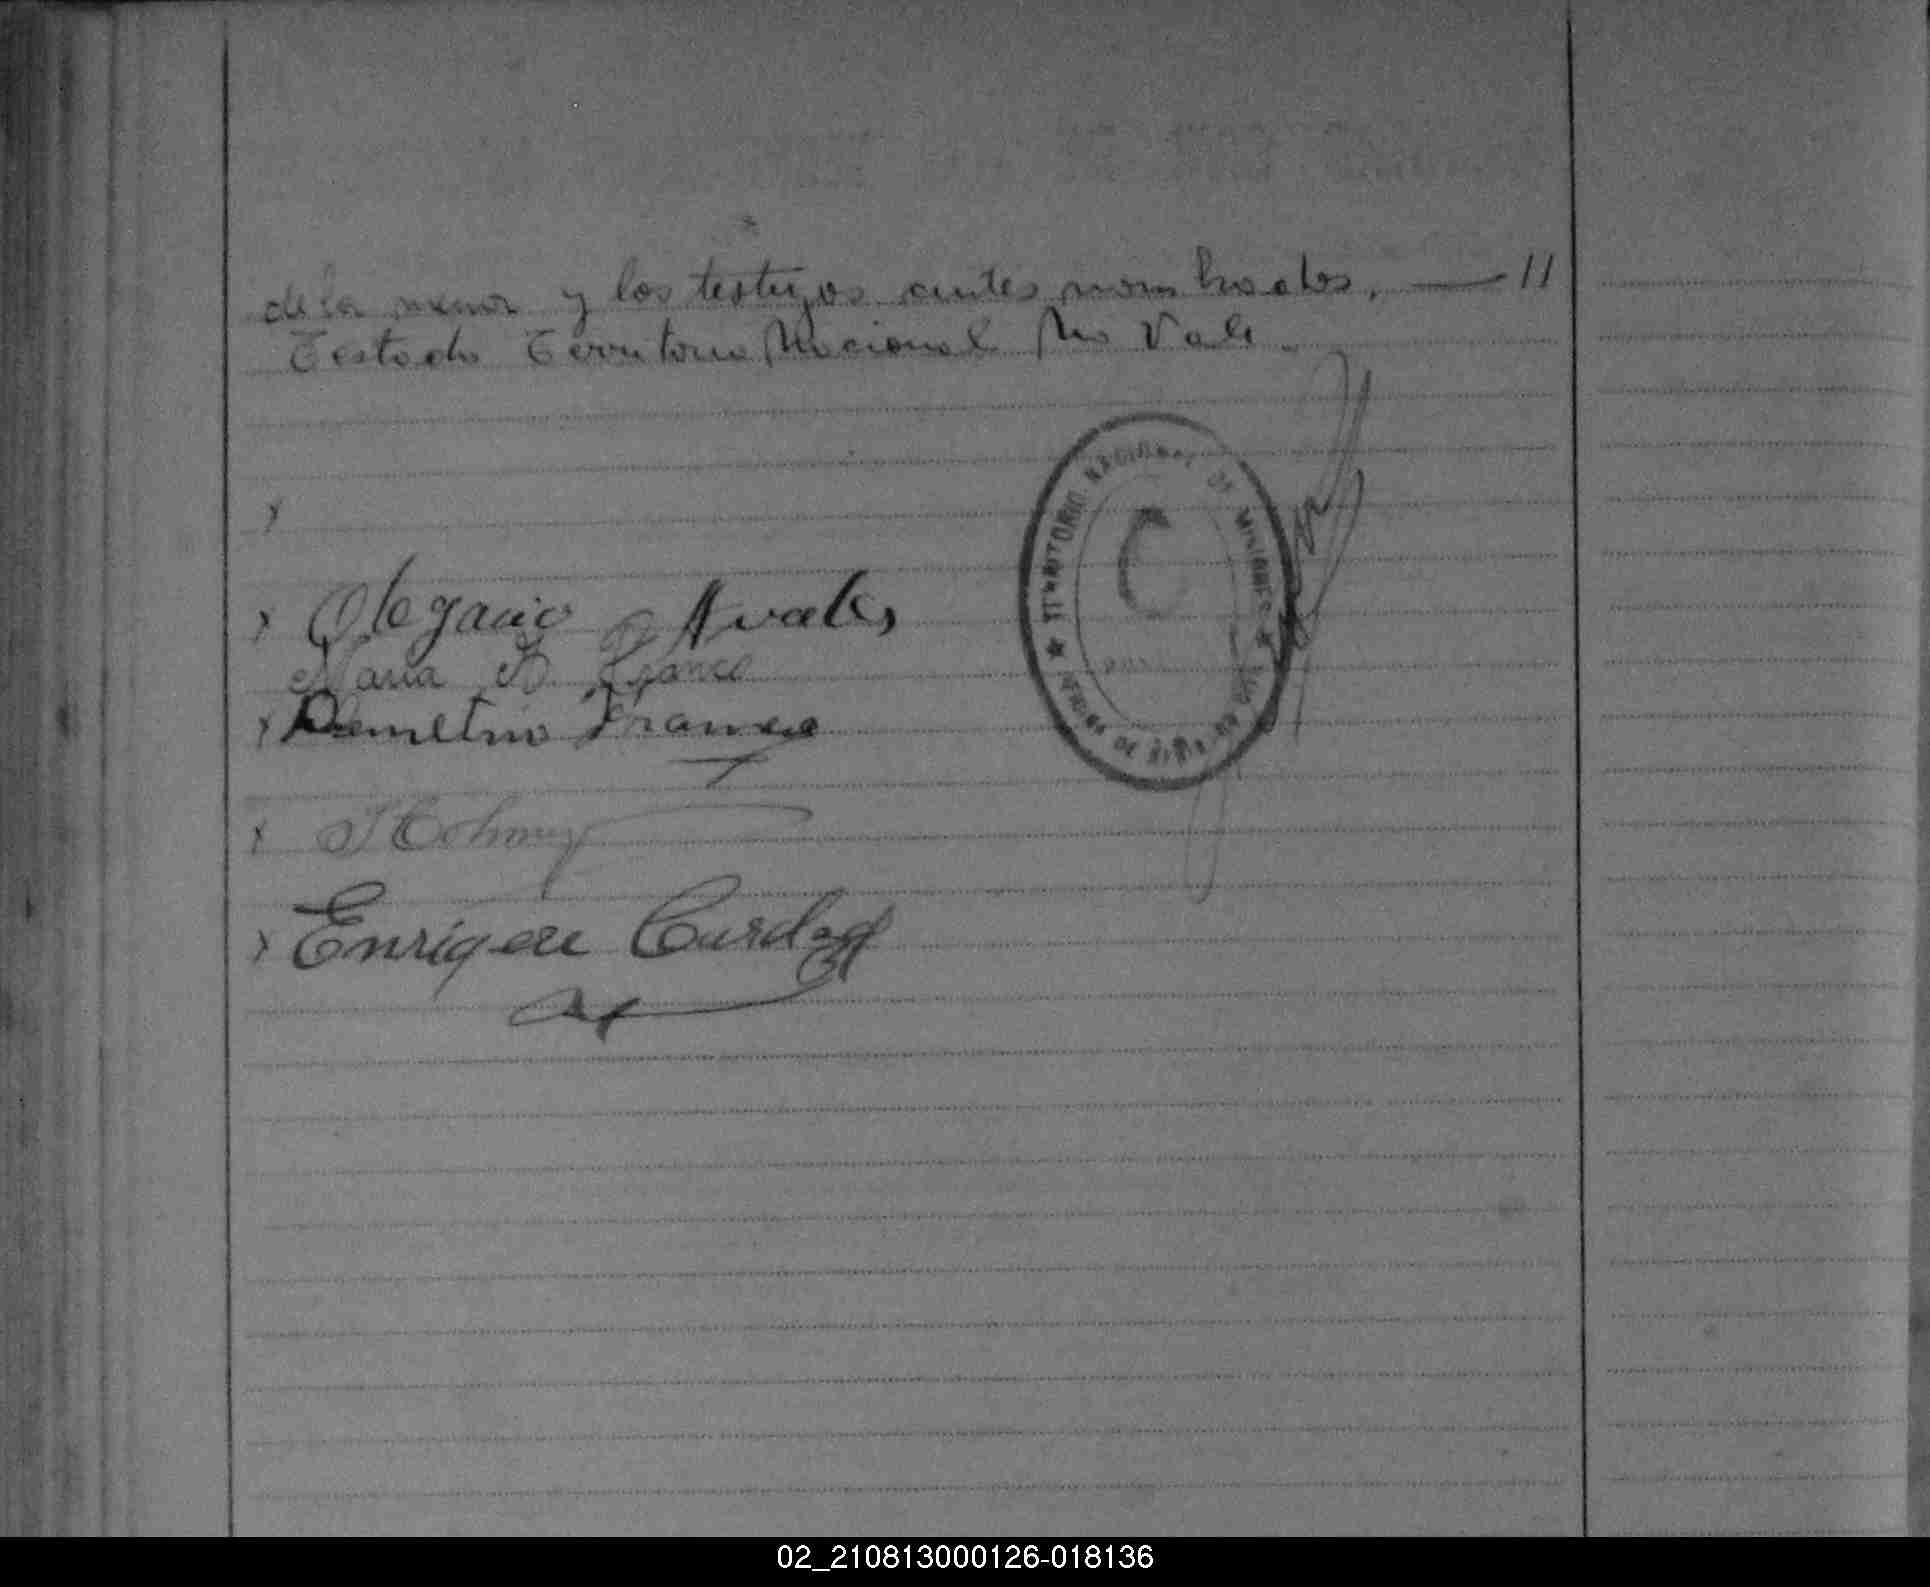 de la menor y los testigos antes nombrados. — //
Testado Territorio Nacional No Vale.
TERRITORIO NACIONAL DE MISIONES
C
Olegario Avalos
Maria B. Franco
Demetrio Franco
Enrique
02_210813000126-018136